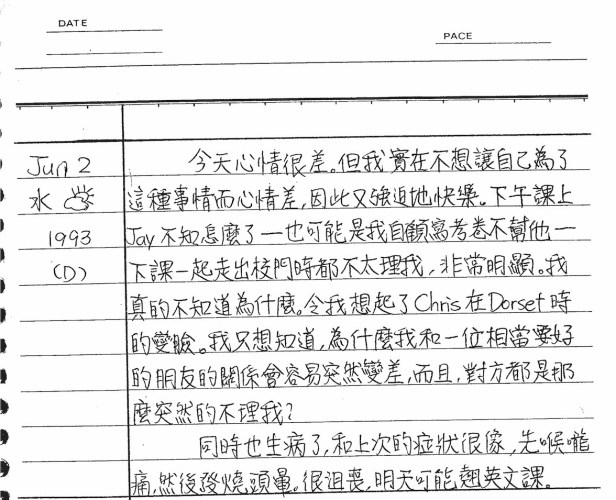 DATE
PACE
Jun 2
水
1993
(D)
今天心情很差。但我實在不想讓自己為了
這種事情而心情差,因此又強迫地快樂。下午課上
Jay不知怎麼了—也可能是我自顧寫考卷不幫他—
下課一起走出校門時都不太理我,非常明顯。我
真的不知道為什麼。令我想起了Chris在Dorset時
的變臉。我只想知道,為什麼我和一位相當要好
的朋友的關係會容易突然變差,而且,對方都是那
麼突然的不理我?
同時也生病了,和上次的症狀很像,先喉嚨
痛,然後發燒頭暈。很沮喪,明天可能翹英文課。